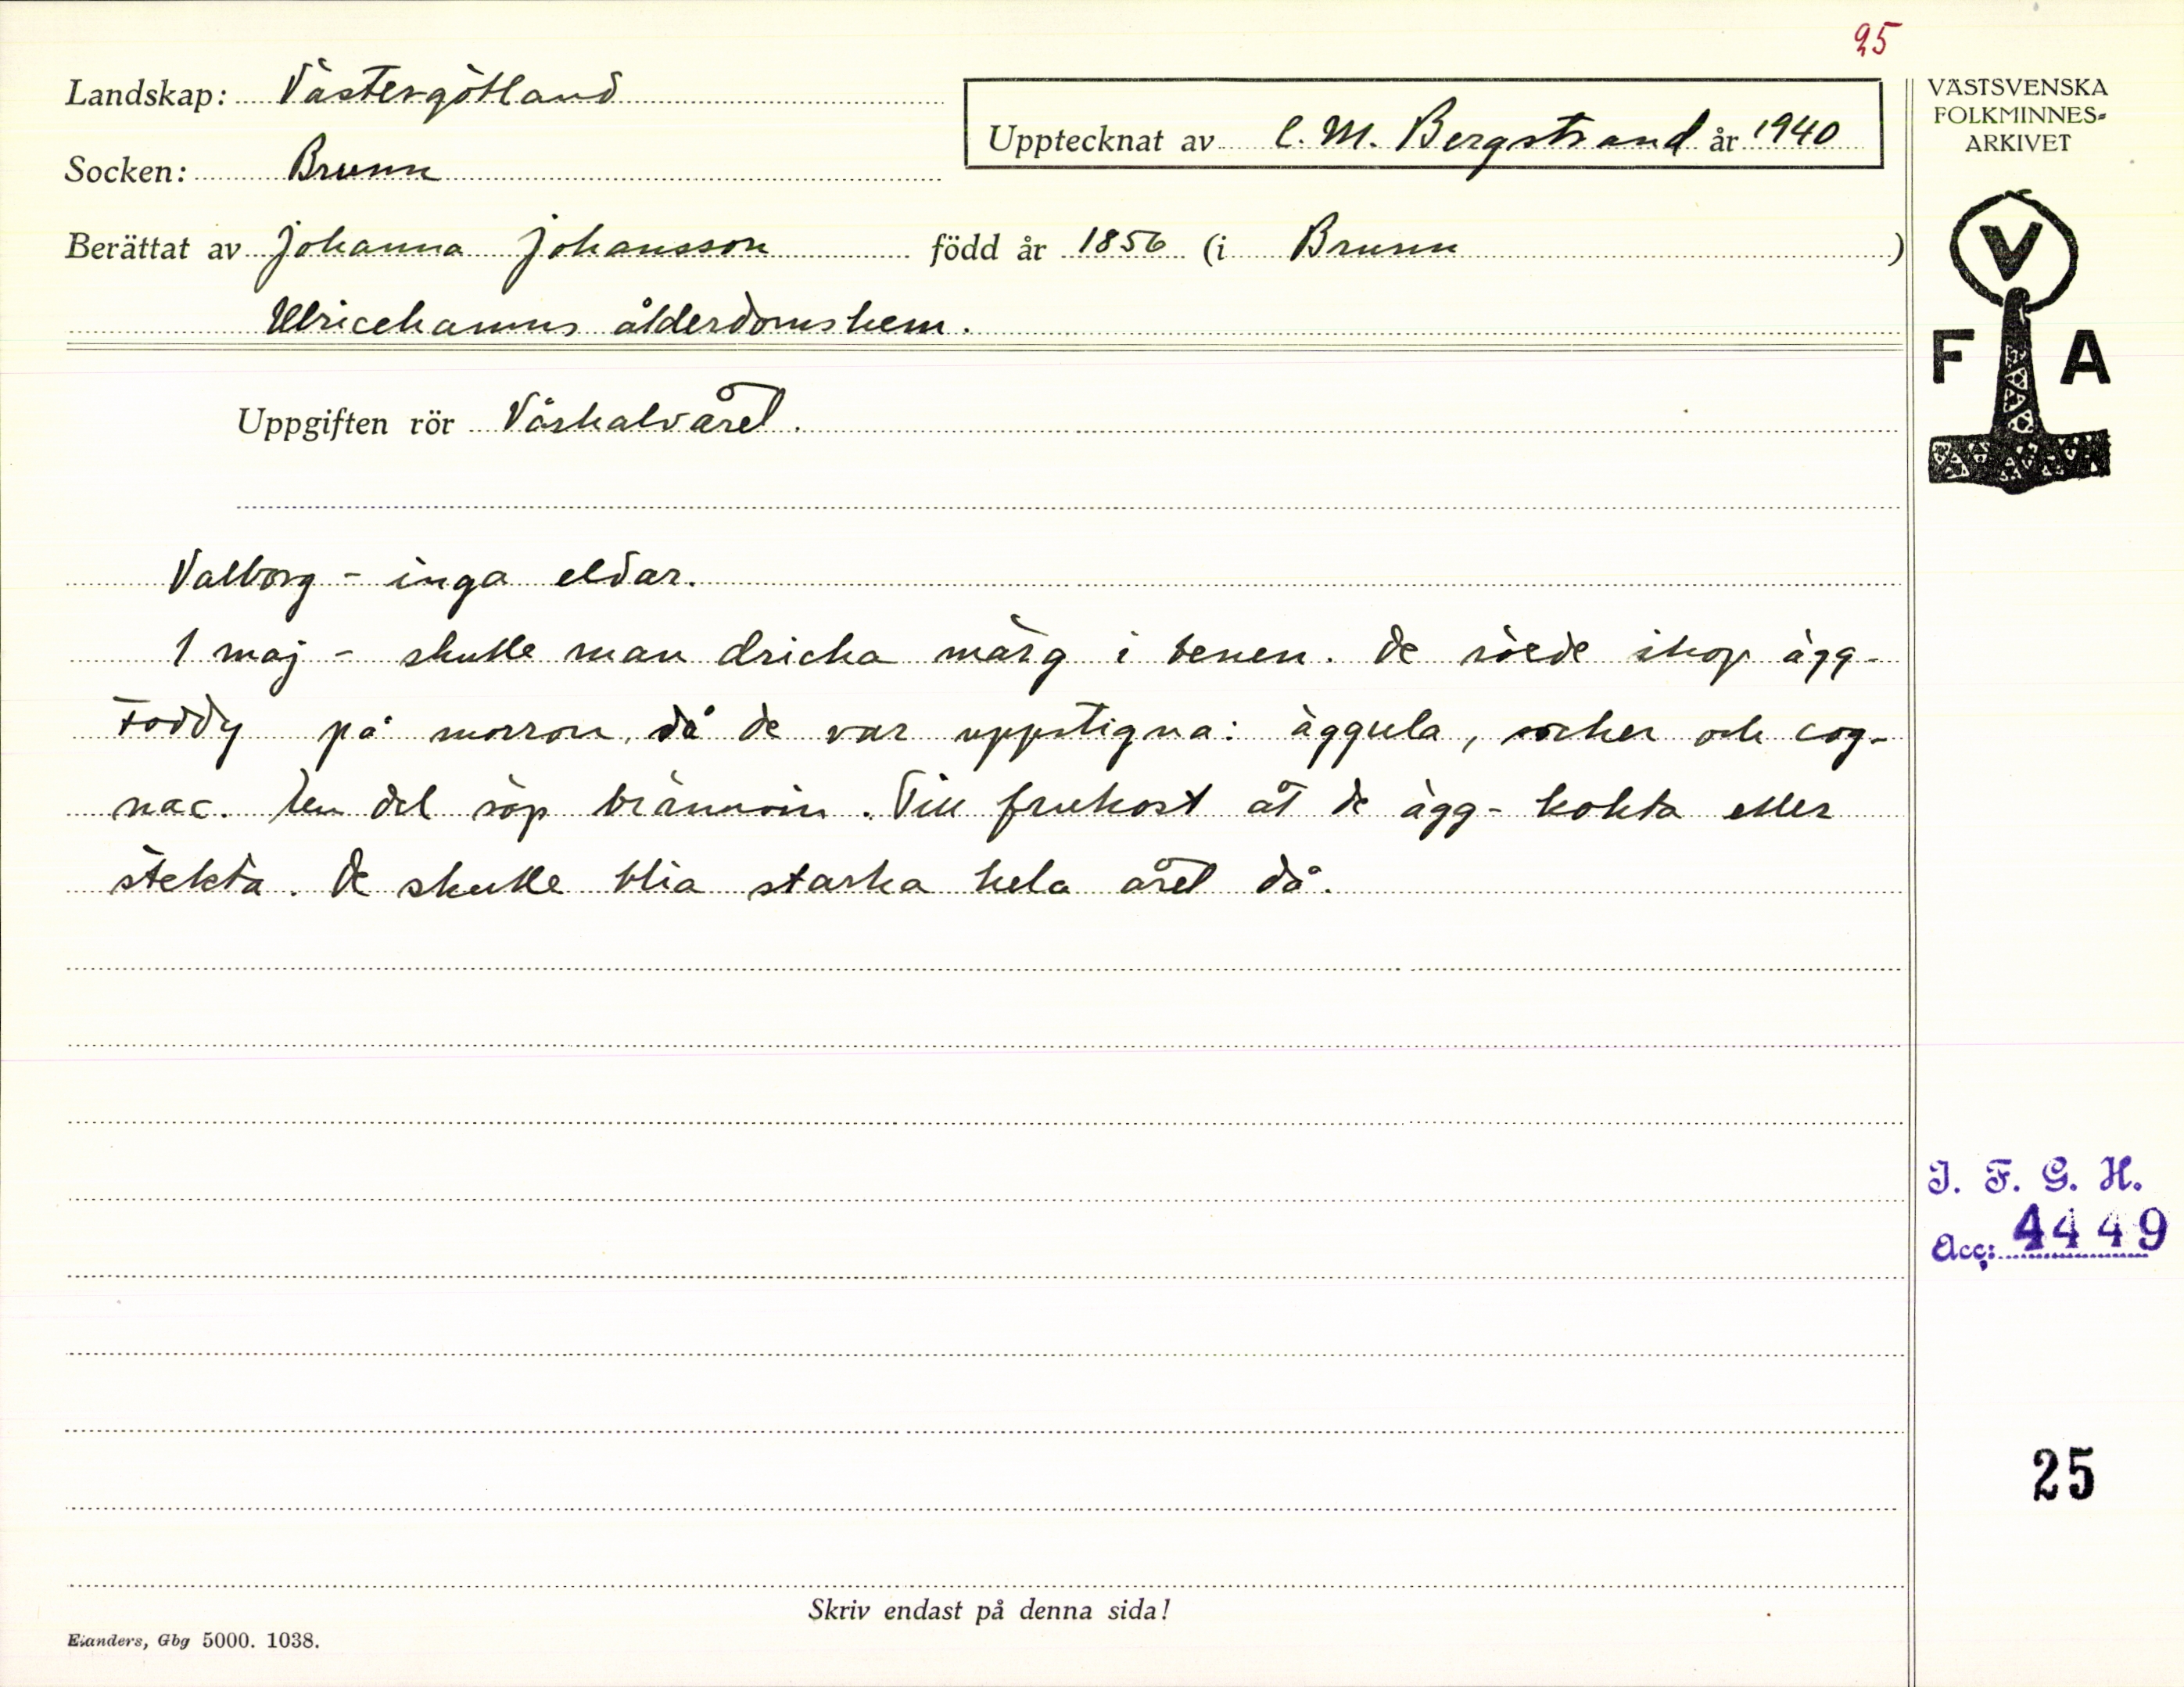 25
Landskap: Västergötland
Upptecknat av C. M. Bergstrand år 1940
Socken: Brunn
Berättat av Johanna Johansson född år 1856 (i Brunn)
Ulricehamns ålderdomshem.
Uppgiften rör Vårhalvåret.
Valborg - inga eldar.
1 maj - skulle man dricka märg i benen. De rörde ihop ägg-
toddy på morron, då de var uppstigna: äggula, socker och cog-
nac. En del söp brännvin. Till frukost åt de ägg - kokta eller
stekta. De skulle blia starka hela året då.
Skriv endast på denna sida!
Elanders, Gbg 5000. 1038.
VÄSTSVENSKA
FOLKMINNES-
ARKIVET
V
F A
I. F. G. H.
Acc: 4449
25